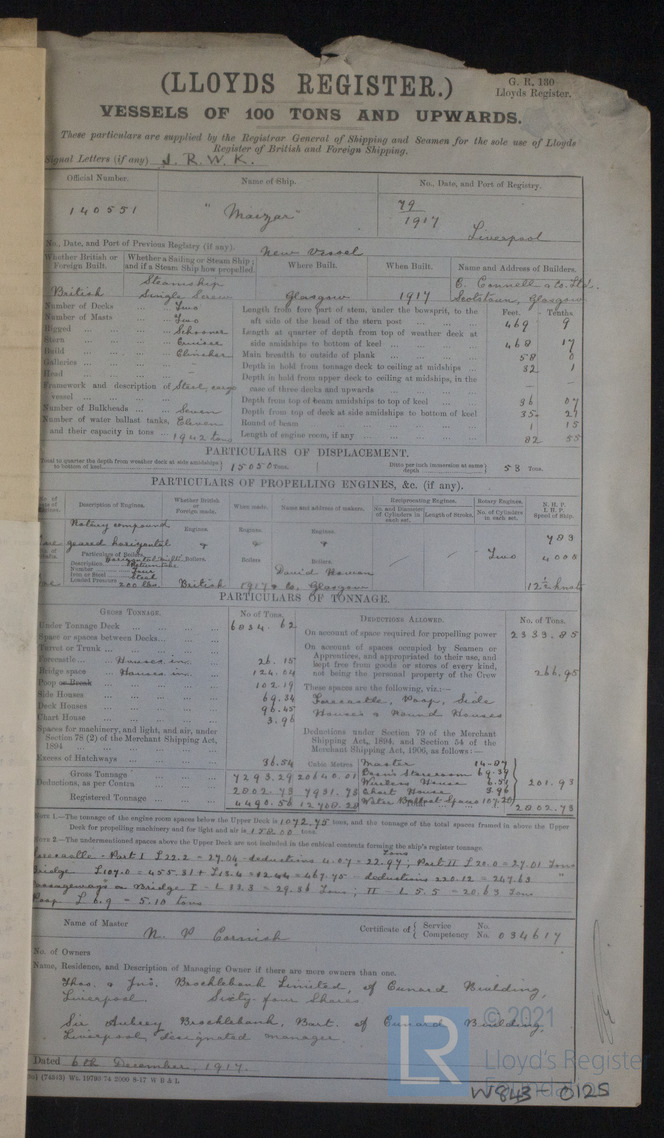 (LLOYDS REGISTER.)
G. R. 130
Lloyds Register.
VESSELS OF 100 TONS AND UPWARDS.
These particulars are supplied by the Registrar General of Shipping and Seamen for the sole use of Lloyds
Register of British and Foreign Shipping.
Signal Letters (if any) J. R. W. K.
Official Number. Name of Ship. No., Date, and Port of Registry.
140551 "Maizar" 79
1917
Liverpool
No., Date, and Port of Previous Registry (if any). New Vessel
Whether British or Foreign Built. Whether a Sailing or Steam Ship; and if a Steam Ship how propelled. Where Built. When Built. Name and Address of Builders.
British Steamship Single Screw Glasgow 1917 C. Connell & Co. Ltd. Scotstoun, Glasgow
Feet. Tenths
Number of Decks ... Two
Number of Masts ... Two
Rigged ... Schooner
Stern ...
Build ... Clincher
Galleries ... -
Head ... -
Framework and description of vessel ... Steel, cargo
Number of Bulkheads ... Seven
Number of water ballast tanks, Eleven
and their capacity in tons ... 1942 tons
Length from fore part of stem, under the bowsprit, to the aft side of the head of the stern post 469 9
Length at quarter of depth from top of weather deck at side amidships to bottom of keel 468 17
Main breadth to outside of plank 58 0
Depth in hold from tonnage deck to ceiling at midships 32 1
Depth in hold from upper deck to ceiling at midships, in the case of three decks and upwards — —
Depth from top of beam amidships to top of keel 36 07
Depth from top of deck at side amidships to bottom of keel 35 21
Round of beam 1 15
Length of engine room, if any 82 55
PARTICULARS OF DISPLACEMENT.
Total to quarter the depth from weather deck at side amidships to bottom of keel 15050 Tons.
Ditto per inch immersion at same depth 58 Tons.
PARTICULARS OF PROPELLING ENGINES, &c. (if any).
Description of Engines. Whether British or Foreign made. When made. Name and address of makers. Reciprocating Engines. Rotary Engines. N. H. P. I. H. P. Speed of Ship.
No. and Diameter of Cylinders in each set. Length of Stroke. No. of Cylinders in each set.
Rotary compound geared horizontal
Engines. Engines. Engines.
Two
783
4000
12½ knots
Particulars of Boilers.
Description
Number
Iron or Steel Steel
Loaded Pressure 200 lbs.
Boilers. Boilers Boilers.
British 1917 David Rowan & Co. Glasgow
PARTICULARS OF TONNAGE.
GROSS TONNAGE. No. of Tons.
Under Tonnage Deck 6834 62
Space or spaces between Decks
Turret or Trunk
Forecastle Houses in 26.15
Bridge space Houses in 124.04
Poop or Break 102.19
Side Houses 69.34
Deck Houses 96.45
Chart House 3.96
Spaces for machinery, and light, and air, under Section 78 (2) of the Merchant Shipping Act, 1894
Excess of Hatchways 36.54
Cubic Metres
Gross Tonnage 7293.29 20640.01
Deductions, as per Contra 2802.73 7931.73
Registered Tonnage 4490.56 12708.28
DEDUCTIONS ALLOWED. No. of Tons.
On account of space required for propelling power 2333.85
On account of spaces occupied by Seamen or Apprentices, and appropriated to their use, and kept free from goods or stores of every kind, not being the personal property of the Crew 266.95
These spaces are the following, viz.:—
Forecastle, Poop, Side
Houses & Round Houses
Deductions under Section 79 of the Merchant Shipping Act, 1894, and Section 54 of the Merchant Shipping Act, 1906, as follows:—
Master 14.07
Bosn's Storeroom 69.39
Wireless House 6.51
Chart House 3.96
Water Ballast Space 107.20
201.93
2802.73
NOTE 1.—The tonnage of the engine room spaces below the Upper Deck is 1072.75 tons, and the tonnage of the total spaces framed in above the Upper
Deck for propelling machinery and for light and air is tons.
NOTE 2.—The undermentioned spaces above the Upper Deck are not included in the cubical contents forming the ship's register tonnage.
Forecastle - Part I £22.2 = 27.04 - deductions 4.07 = 22.97; Part II £20.0 = 27.01 Tons
Bridge £107.0 = 455.31 + £13.4 = 12.44 = 467.75 - deductions 220.12 = 247.63 "
Passageways in Bridge I - L 12.3 = 29.36 Tons; II - L 5.5 = 20.63 Tons
Poop £6.9 = 5.10 tons
Name of Master N. P Cornish Certificate of { Service No. Competency No. 034617
No. of Owners
Name, Residence, and Description of Managing Owner if there are more owners than one.
Thos. & Jno. Brocklebank Limited, of Cunard Building,
Liverpool. Sixty four Shares.
Sir Aubrey Brocklebank, Bart. of Cunard Building,
Liverpool, designated manager.
Dated 6th December, 1917.
(74345) Wt. 19793/74 2000 8-17 W B & L
LR
© 2021
Lloyd's Register
Foundation
W843-0125